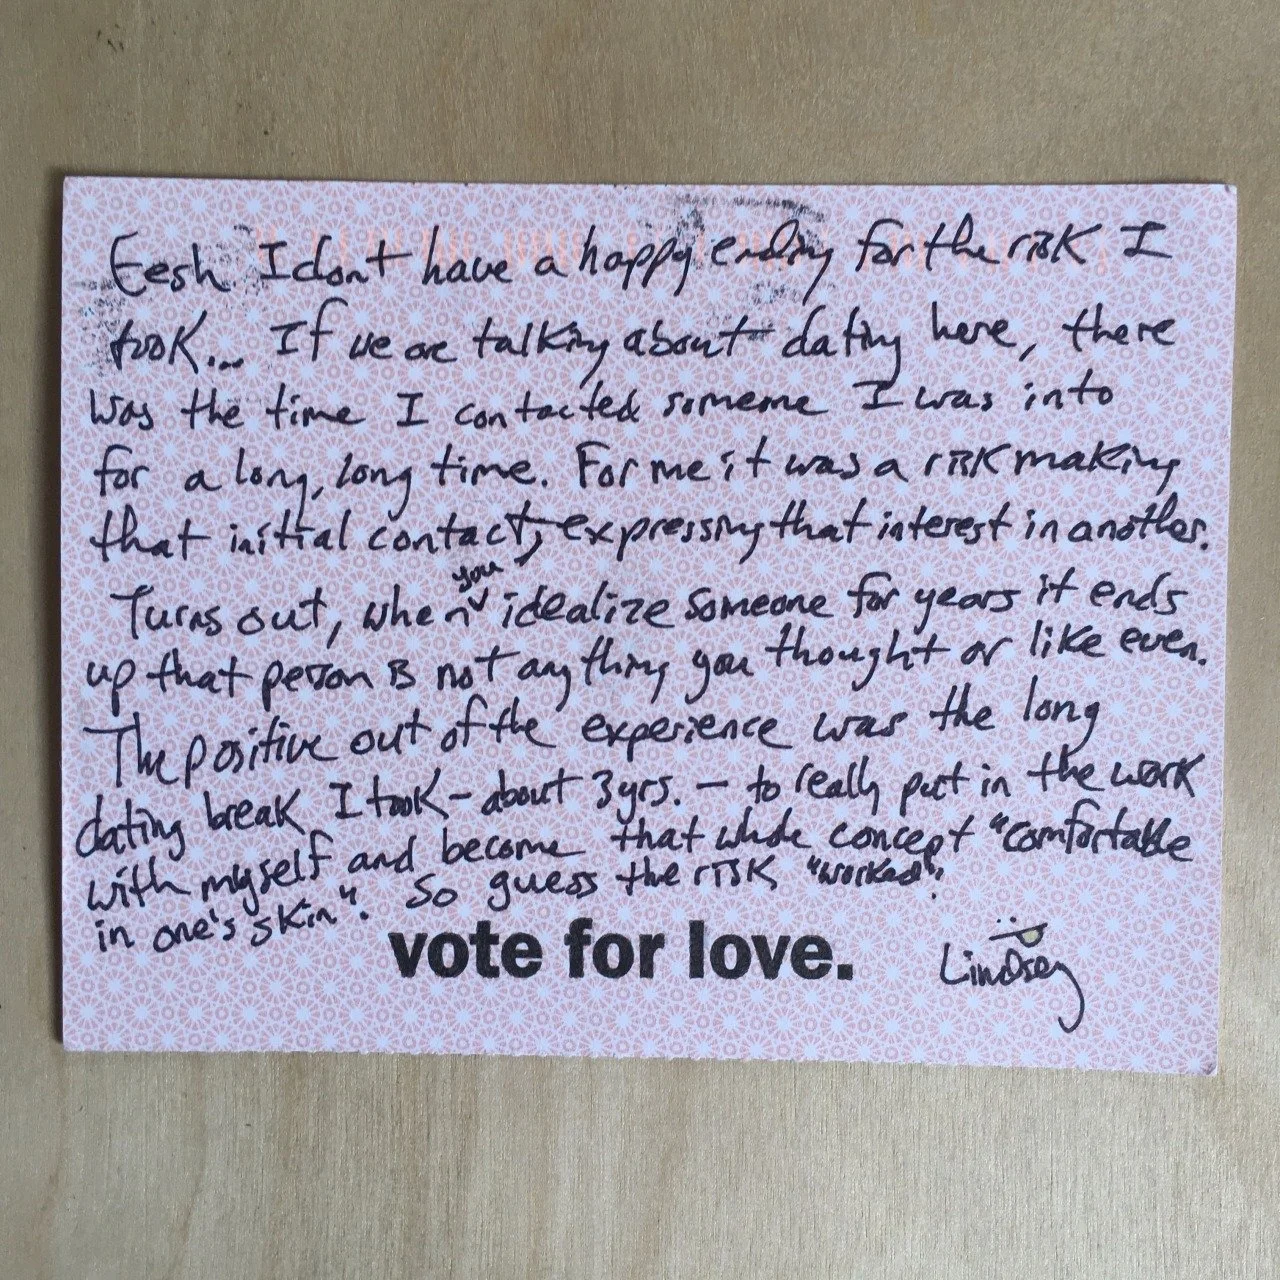 Eesh I dont have a happy ending for the risk I
took... If we are talking about dating here, there
was the time I contacted someone I was into
for a long, long time. For me it was a risk making
that initial contact, expressing that interest in another.
Turns out, when you idealize someone for years it ends
up that person is not anything you thought or like even.
The positive out of the experience was the long
dating break I took - about 3 yrs. - to really put in the work
with myself and become that whole concept "comfortable
in one's skin". So guess the risk "worked"?
vote for love.
Lindsey